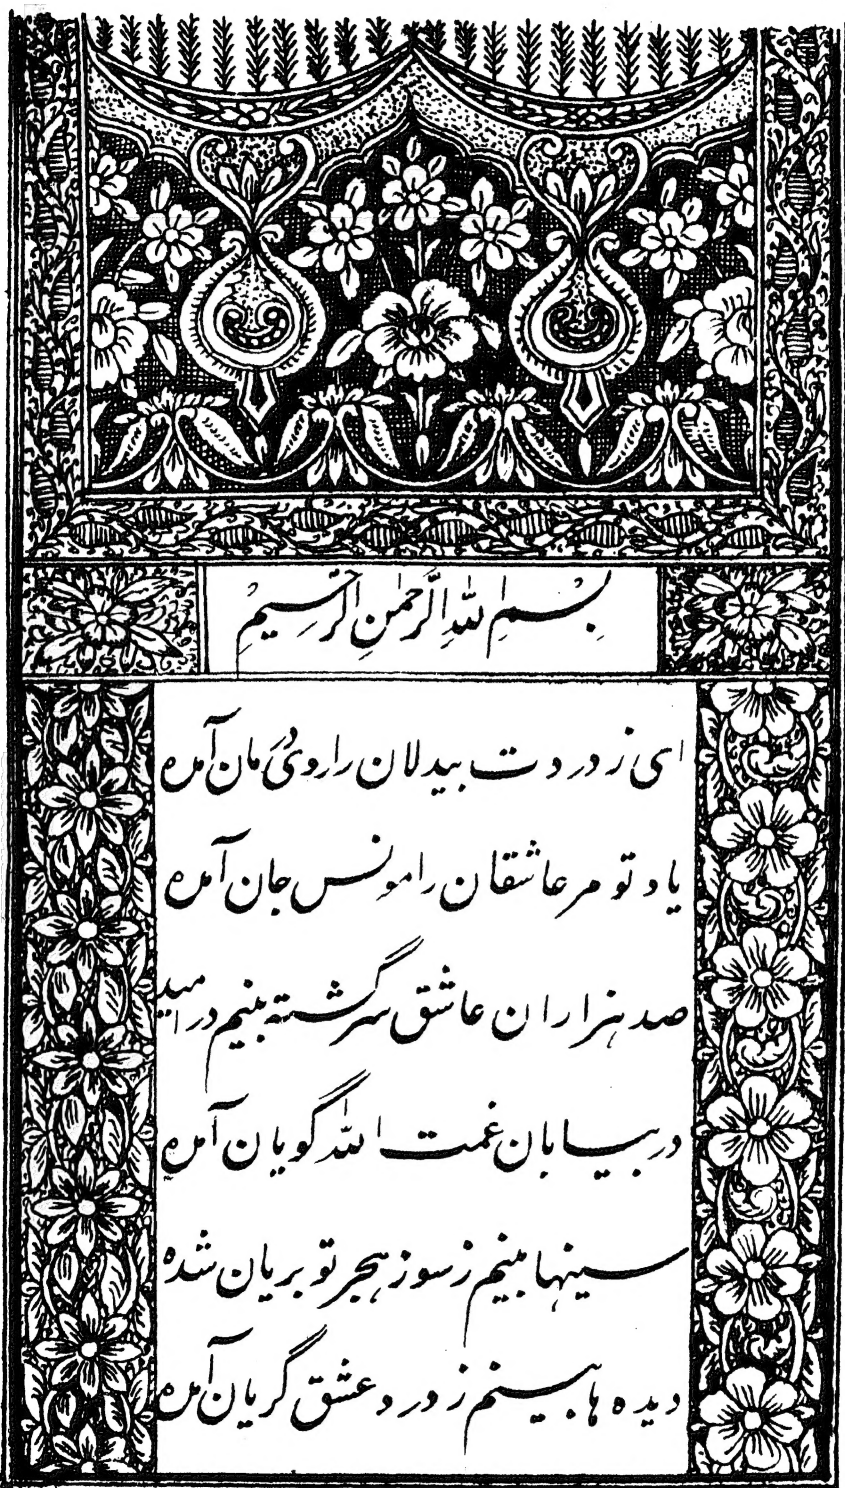 بِسْمِ اللهِ الرَّحْمٰنِ الرَّحِيْمِ
ای ز دردت بیدلان را روی درمان آمده
یاد تو مر عاشقان را مونس جان آمده
صد هزاران عاشق سرگشته بینم در امید
در بیابان غمت الله گویان آمده
سینها بینم ز سوز هجر تو بریان شده
دیده ها بینم ز درد عشق گریان آمده